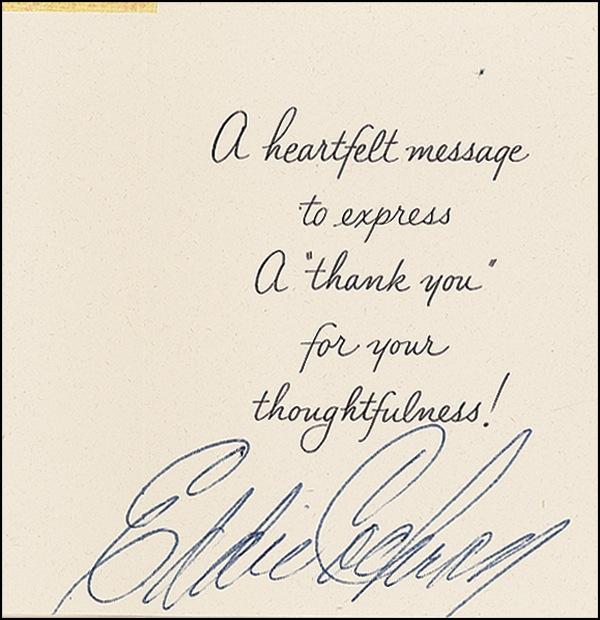 A heartfelt message
to express
A "thank you"
for your
thoughtfulness!
Eddie Cochran